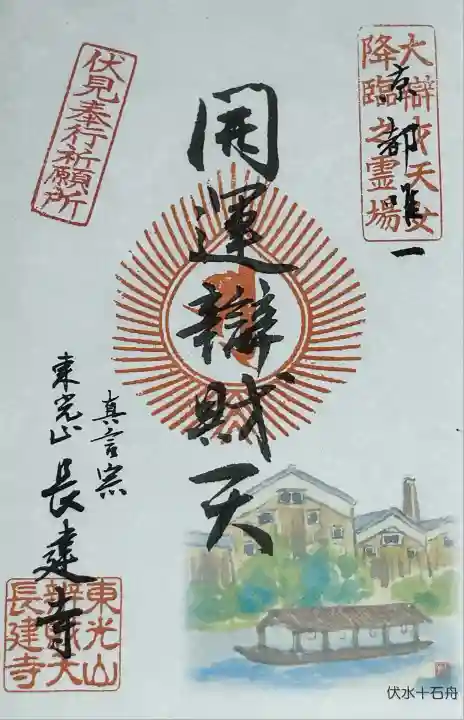 大辯才天女
降臨之霊場
京都唯一
開運辯財天
伏見奉行祈願所
真言宗
東光山
長建寺
東光山
辨財天
長建寺
伏水十石舟